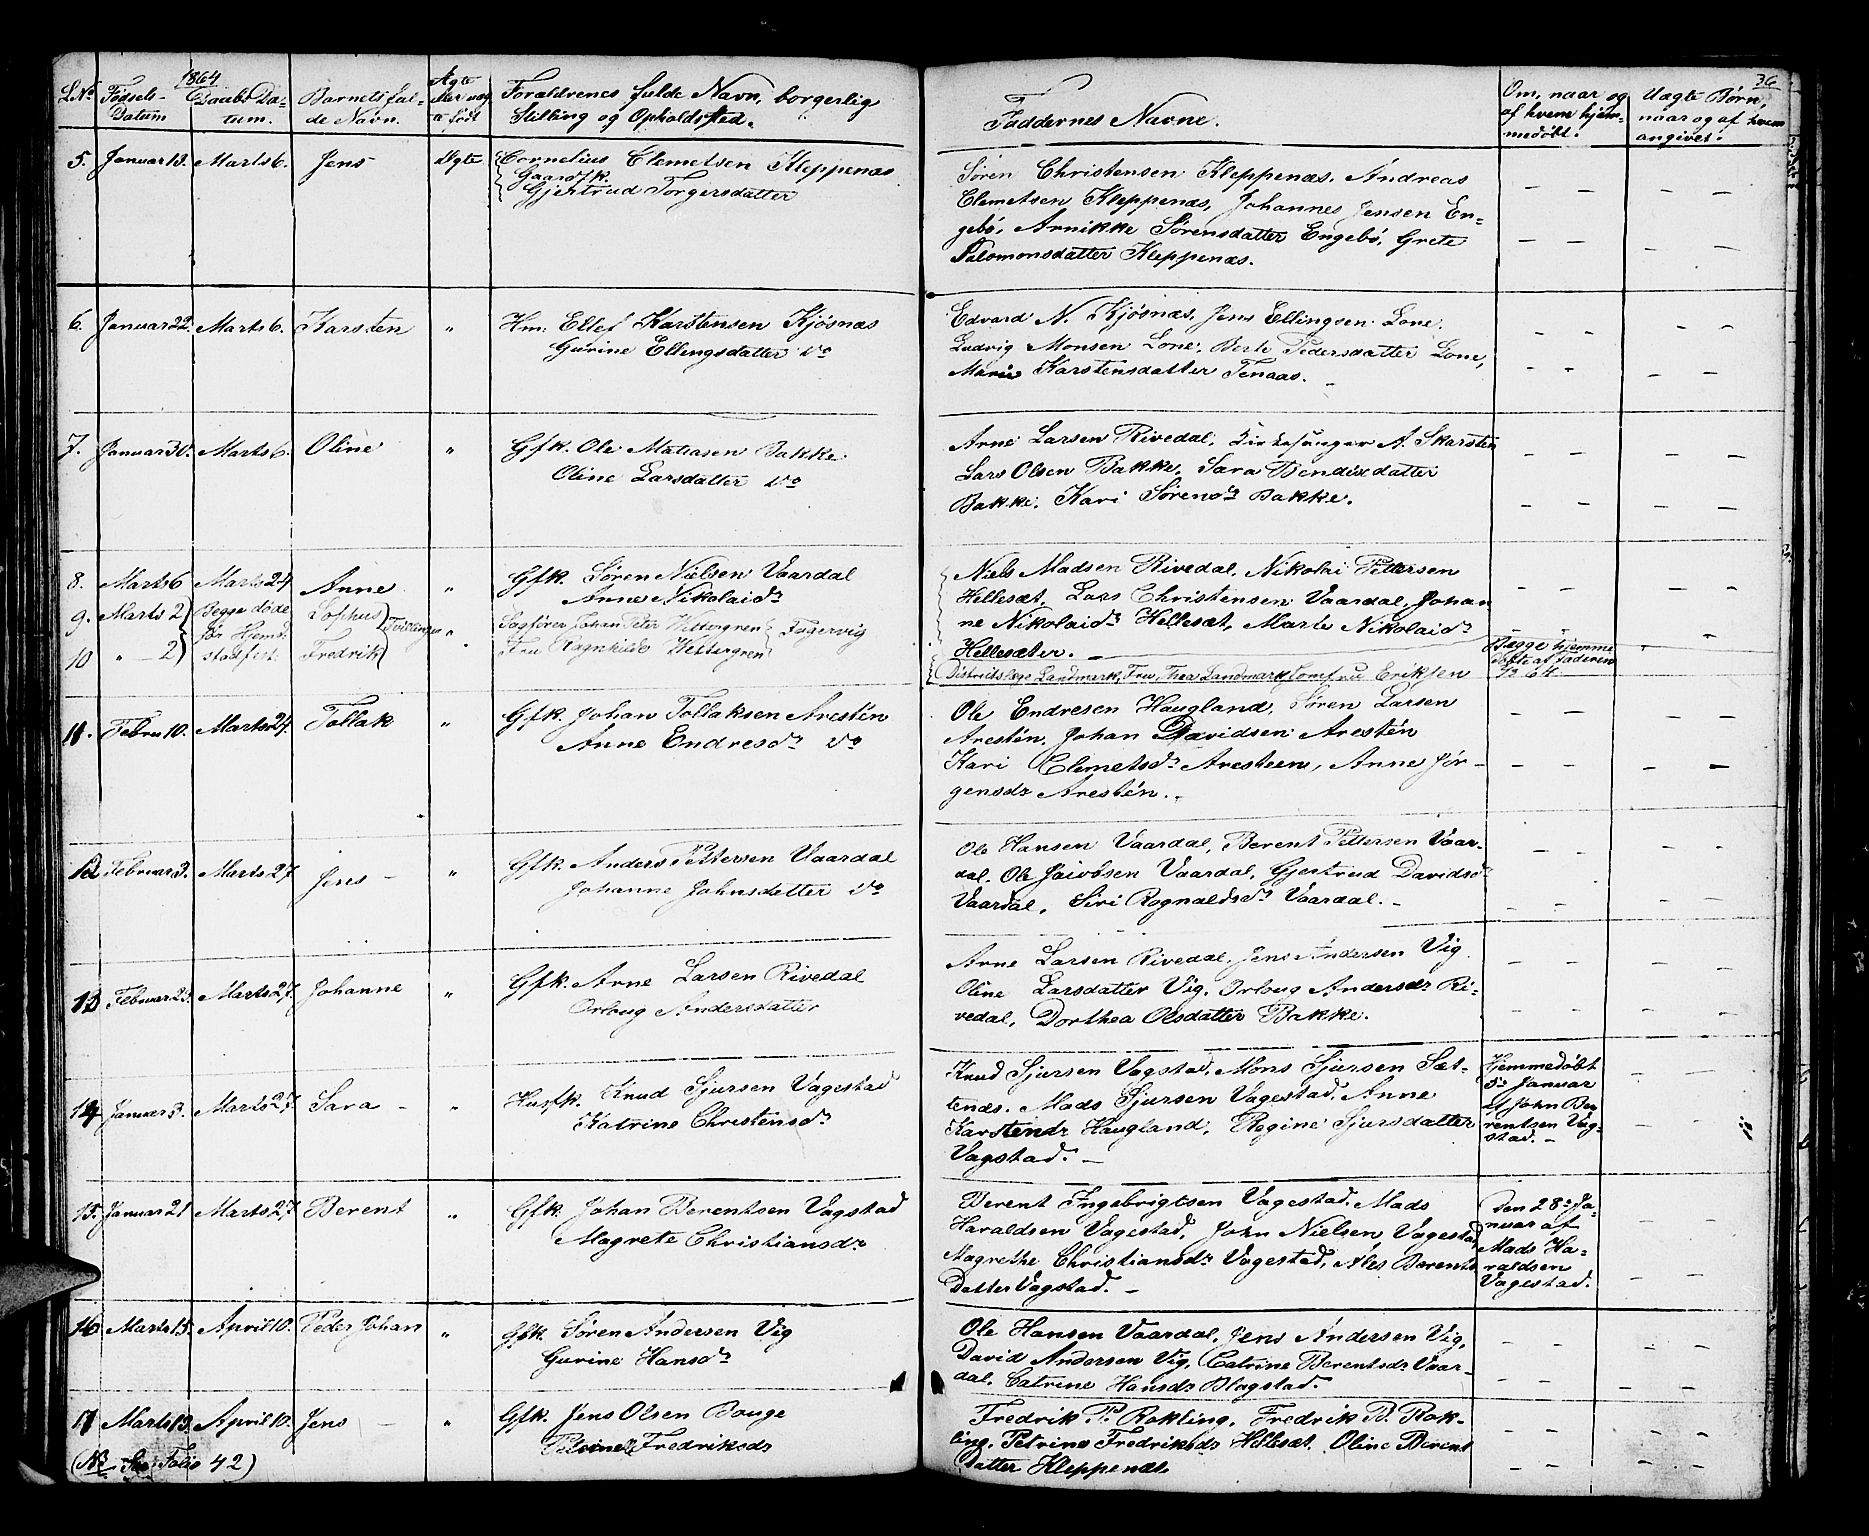 1864
36
L. No Fødsels-Datum Daabs Da-tum. Barnets ful-de Navn. Ægte eller uæg-te født Forældrenes fulde Navn, borgerlig Stilling og Opholdsted. Faddernes Navne. Om, naar og af hvem hjem-medøbt. Uægte Børn, naar og af hvem angivet.
5. Januar 13. Marts 6. Jens Ægte Cornelius Clemetsen Kleppenæs
Gaardfk.
Gjertrud Torgersdatter
Søren Christensen Kleppenæs, Andreas
Clemetsen Kleppenæs, Johannes Jensen En-
gebø, Arnikke Sørensdatter Engebø, Grete
Salomonsdatter Kleppenæs.
6. Januar 22. Marts 6. Karsten " Hm. Ellef Karstensen Kjøsnæs
Gurine Ellingsdatter do
Edvard N. Kjøsnæs, Jens Ellingsen Lone,
Ludvig Monsen Lone, Berte Pedersdatter Lone,
Marie Karstensdatter Tenaas.
7. Januar 30. Marts 6. Oline " Gfk. Ole Matiasen Bakke
Oline Larsdatter do
Arne Larsen Rivedal, Kirkesanger A. Skarsten
Lars Olsen Bakke, Sara Bendixdatter
Bakke, Kari Sørensdr Bakke.
8. Marts 6 Marts 24 Anne " Gfk. Søren Nielsen Vaardal
Anne Nikolaidr
Niels Madsen Rivedal, Nikolai Pettersen
Hellesæt, Lars Christensen Vaardal, Johan
ne Nikolaidr Hellesæt, Marte Nikolaidr
Hellesæter.
9. Marts 2 Begge døde Sophus Tvillinger " Sagfører Johan Peter Wettergren Fagervig
før Hjems
10 " - 2 stadfest. Fredrik Fru Ragnhilde Wettergren
Distriktslæge Landmark, Fru Thea Landmark, Jomfru Eriksen
Begge hjemme
døbte af Faderen
64
11. Febru 10. Marts 24. Tollak " Gfk. Johan Tollaksen Arestén
Anne Endresdr do
Ole Endresen Haugland, Søren Larsen
Arestén, Johan Davidsen Arestén
Kari Clemetsdr Aresteen, Anne Jør-
gensdr Arestén.
12 Februar 3. Marts 27 Jens - " Gfk. Anders Pettersen Vaardal
Johanne Johnsdatter do
Ole Hansen Vaardal, Berent Pettersen Vaar-
dal, Ole Jacobsen Vaardal, Gjertrud Davidsdr
Vaardal, Siri Rognaldsdr Vaardal.
13 Februar 23. Marts 27. Johanne " Gfk. Arne Larsen Rivedal
Orloug Andersdatter
Arne Larsen Rivedal, Jens Andersen Vig
Oline Larsdatter Vig, Orloug Andersdr Ri-
vedal, Dorthea Olsdatter Bakke.
14 Januar 3. Marts 27 Sara - " Husfk. Knud Sjursen Vagestad
Katrine Christensdr
Knud Sjursen Vagstad, Mons Sjursen Sæt-
tenæs, Mads Sjursen Vagestad, Anne
Karstendr Haugland, Regine Sjursdatter
Vagstad. -
Hjemmedøbt
5. Januar
af John Be
rentsen Vag-
stad. -
15. Januar 21 Marts 27 Berent " Gfk. Johan Berentsen Vagstad
Magrete Christiansdr
Berent Ingebrigtsen Vagestad, Mads
Haraldsen Vagestad, John Nielsen Vagestad,
Magrethe Christiansdr Vagestad, Ales Berents
Datter Vagstad. -
Den 28de Ja-
nuar af
Mads Ha-
raldsen
Vagestad.
16 Marts 15. April 10. Peder Johan " Gfk Søren Andersen Vig
Gurine Hansdr
Ole Hansen Vaardal, Jens Andersen Vig,
David Andersen Vig, Catrine Berentsdr Vaar-
dal, Catrine Hansdr Blagstad.
17 Marts 13. April 10. Jens - " Gfk. Jens Olsen Bouge
Petrine Fredriksdr
Fredrik P. Rokling, Fredrik B. Rok-
ling, Petrine Fredriksdr Hellesæt, Oline Berent
Datter Kleppenæs
(NB. See Folio 42)